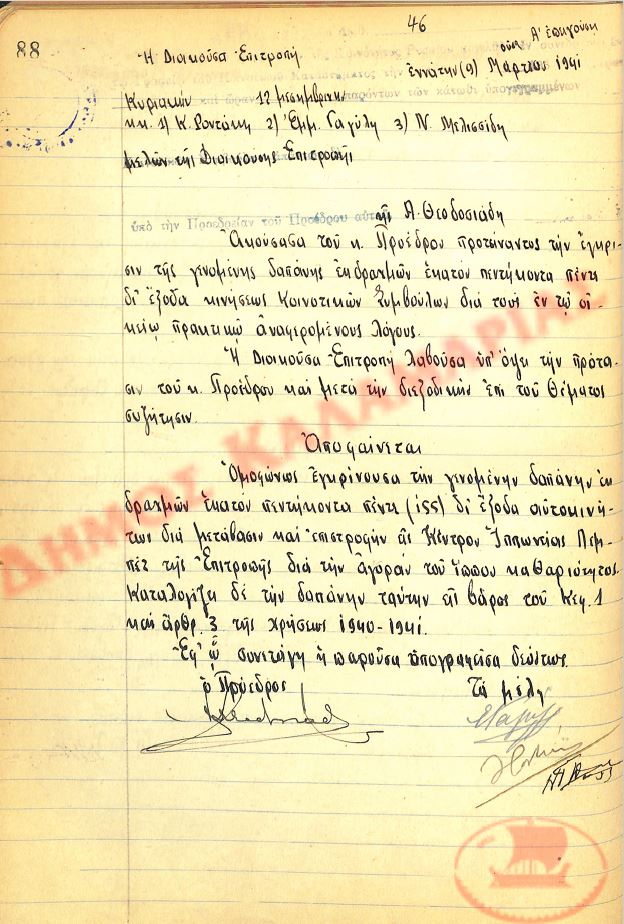 88
46
Ἡ Διοικοῦσα Ἐπιτροπή
Α' ἐπειγοῦσα
ἐννάτην (9) Μαρτίου 1941
Κυριακήν καὶ ὥραν 12 μεσημβρινήν παρόντων τῶν κάτωθι ὑπογεγραμμένων
κκ. 1) Κ. Ροντάκη 2) Ἐμμ. Γαγύλη 3) Ν. Μελισσίδη
μελῶν τῆς Διοικούσης Ἐπιτροπῆς
ὑπὸ τὴν Προεδρείαν τοῦ Προέδρου αὐτῆς Α. Θεοδοσιάδη
Ἀκούσασα τοῦ κ. Προέδρου προτείναντος τὴν ἔγκρι-
σιν τῆς γενομένης δαπάνης ἐκ δραχμῶν ἑκατὸν πεντήκοντα πέντε
δι' ἔξοδα κινήσεως Κοινοτικῶν Συμβούλων διὰ τοὺς ἐν τῷ οἰ-
κείῳ πρακτικῷ ἀναφερομένους λόγους.
Ἡ Διοικοῦσα Ἐπιτροπὴ λαβοῦσα ὑπ' ὄψει τὴν πρότα-
σιν τοῦ κ. Προέδρου καὶ μετὰ τὴν διεξοδικὴν ἐπὶ τοῦ θέματος
συζήτησιν.
Ἀποφαίνεται
Ὁμοφώνως ἐγκρίνουσα τὴν γενομένην δαπάνην ἐκ
δραχμῶν ἑκατὸν πεντήκοντα πέντε (155) δι' ἔξοδα αὐτοκινή-
του διὰ μετάβασιν καὶ ἐπιστροφὴν εἰς Κέντρον Ἱππωνείας Λεμ-
πὲτ τῆς Ἐπιτροπῆς διὰ τὴν ἀγορὰν τοῦ ἵππου καθαριότητος
Καταλογίζει δὲ τὴν δαπάνην ταύτην εἰς βάρος τοῦ Κεφ. 1
καὶ ἄρθρ. 3 τῆς χρήσεως 1940-1941.
Ἐφ' ᾧ συνετάγη ἡ παροῦσα ὑπογραφεῖσα δεόντως.
ὁ Πρόεδρος Τὰ μέλη
ΔΗΜΟΣ ΚΑΛΑΜΑΡΙΑΣ